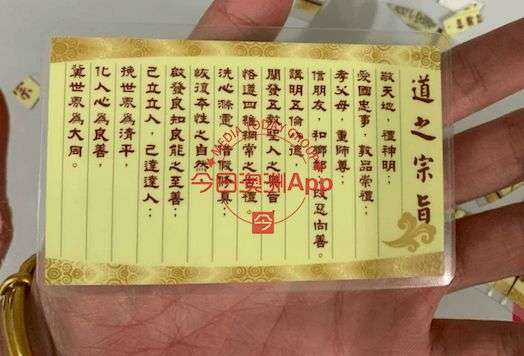 道之宗旨
敬天地，禮神明；
愛國忠事，敦品崇禮；
孝父母，重師尊；
信朋友，和鄉 改惡向善。
講明五倫 德
闡發五教聖人之 旨
恪遵四維綱常之 禮。
洗心滌慮借假修真；
恢復本性之自然
啟發良知良能之至善；
己立立人，己達達人；
挽世界為清平，
化人心為良善，
冀世界為大同。
MEDIA TODAY GROUP
今日澳洲App
今